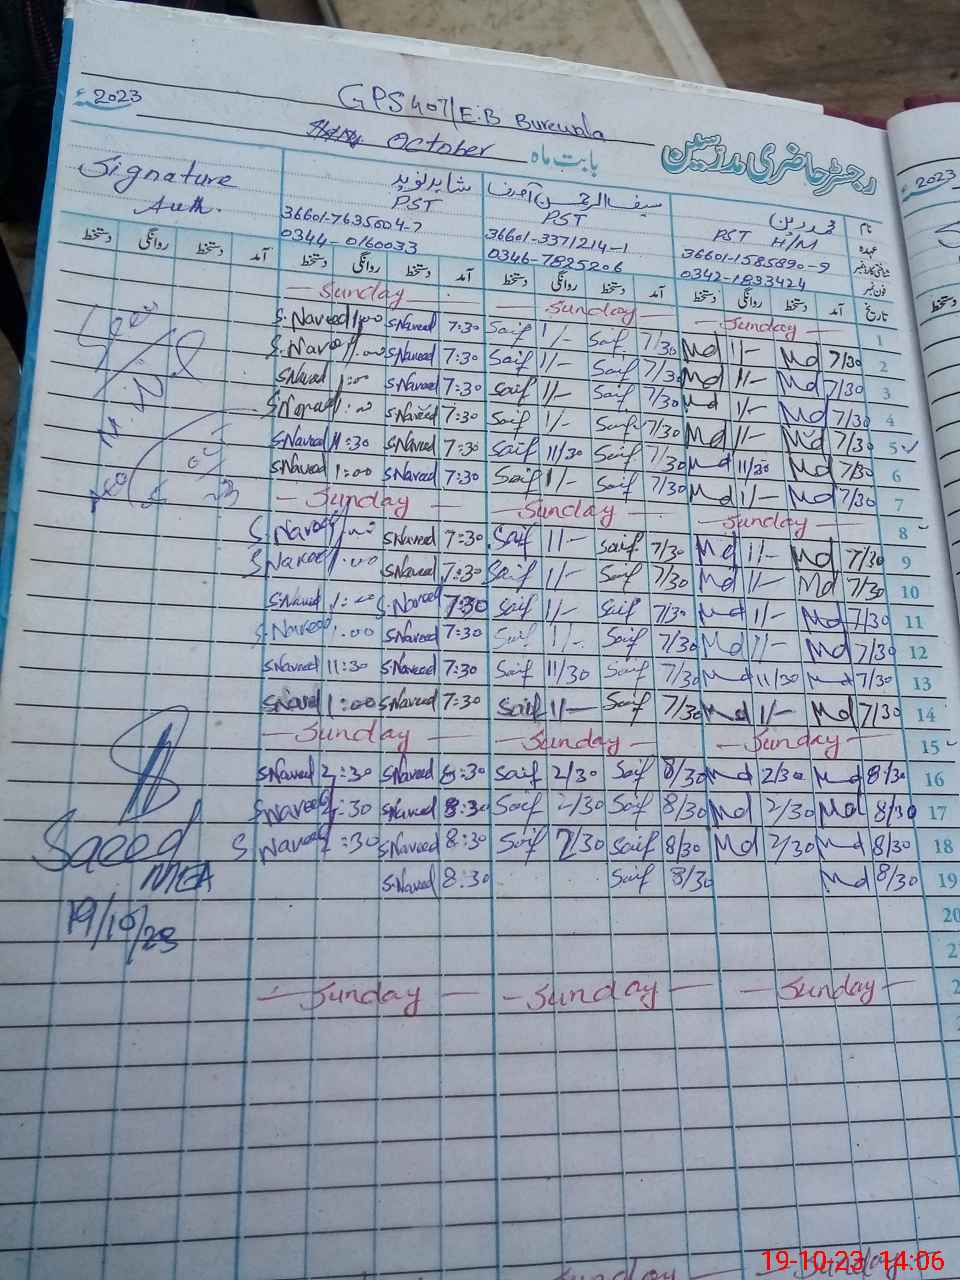 GPS 407/E.B Burewala
2023
October بابت ماہ رجسٹر حاضری مدرسین
Signature شاہد نوید سیف الرحمن نام
Auth. PST PST PST H/M عہدہ
36601-7635004-7 36601-3371214-1 36601-1585890-9 شناختی کارڈ نمبر
0344-0160033 0346-7825206 0342-1833424 فون نمبر
دستخط روانگی دستخط آمد دستخط روانگی دستخط آمد دستخط روانگی دستخط آمد دستخط روانگی دستخط آمد تاریخ
— Sunday — — Sunday — — Sunday — 1
S.Naveed 1:00 S.Naveed 7:30 Saif 1/- Saif 7/30 Md 1/- Md 7/30 2
S.Naveed 1:00 S.Naveed 7:30 Saif 1/- Saif 7/30 Md 1/- Md 7/30 3
S.Naveed 1:00 S.Naveed 7:30 Saif 1/- Saif 7/30 Md 1/- Md 7/30 4
S.Naveed 1:00 S.Naveed 7:30 Saif 1/- Saif 7/30 Md 1/- Md 7/30 5
S.Naveed 11:30 S.Naveed 7:30 Saif 11/30 Saif 7/30 Md 11/30 Md 7/30 6
S.Naveed 1:00 S.Naveed 7:30 Saif 1/- Saif 7/30 Md 1/- Md 7/30 7
— Sunday — — Sunday — — Sunday — 8
S.Naveed 1:00 S.Naveed 7:30 Saif 1/- Saif 7/30 Md 1/- Md 7/30 9
S.Naveed 1:00 S.Naveed 7:30 Saif 1/- Saif 7/30 Md 1/- Md 7/30 10
S.Naveed 1:00 S.Naveed 7:30 Saif 1/- Saif 7/30 Md 1/- Md 7/30 11
S.Naveed 1:00 S.Naveed 7:30 Saif 1/- Saif 7/30 Md 1/- Md 7/30 12
S.Naveed 11:30 S.Naveed 7:30 Saif 11/30 Saif 7/30 Md 11/30 Md 7/30 13
S.Naveed 1:00 S.Naveed 7:30 Saif 1/- Saif 7/30 Md 1/- Md 7/30 14
— Sunday — — Sunday — — Sunday — 15
S.Naveed 2:30 S.Naveed 8:30 Saif 2/30 Saif 8/30 Md 2/30 Md 8/30 16
S.Naveed 2:30 S.Naveed 8:30 Saif 2/30 Saif 8/30 Md 2/30 Md 8/30 17
Saeed S.Naveed 2:30 S.Naveed 8:30 Saif 2/30 Saif 8/30 Md 2/30 Md 8/30 18
MEA S.Naveed 8:30 Saif 8/30 Md 8/30 19
19/10/23 20
2
— Sunday — — Sunday — — Sunday — 2
Sunday Sunday
2023
دستخط
19-10-23 14:06